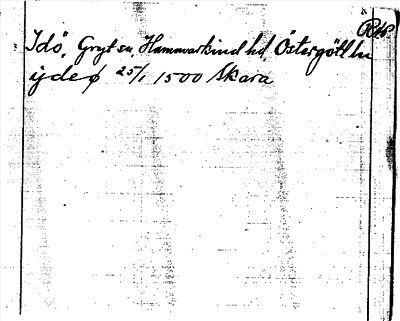 Idö, Gryt sn, Hammarkind hd, Östergötl ln
ydeø 25/1 1500 Skara